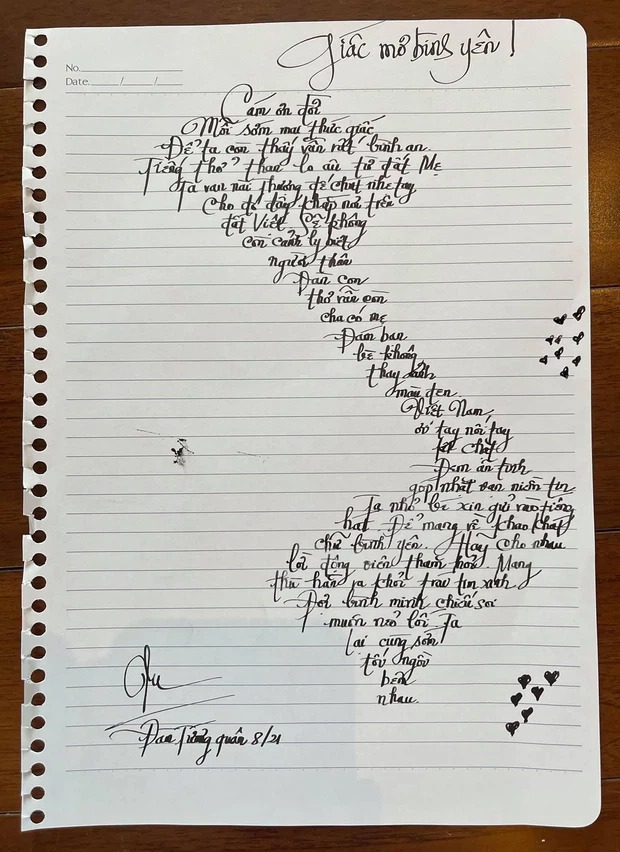 Giấc mơ bình yên!
No.
Date / /
Cám ơn đời
Mỗi sớm mai thức giấc
Để ta còn thấy vẫn rất bình an.
Tiếng thở than lo âu từ đất Mẹ
Ta van nài thượng đế chút nhẹ tay
Cho đó đây khắp nơi trên
đất Việt Sẽ không
còn cảnh ly biệt
người thân
Đàn con
thơ vẫn còn
cha có mẹ
Đám bạn
bè không
thay ảnh
màu đen
Việt Nam
ơi tay nối tay
kết chặt
Đem ân tình
góp nhặt vạn niềm tin
Ta nhỏ bé xin gửi vào tiếng
hát Để mang về khao khát
chữ bình yên. Hãy cho nhau
lời động viên thăm hỏi. Mang
thù hận ra khỏi trái tim xanh
Đợi bình minh chiếu soi
muôn nẻo lối Ta
lại cùng sớm
tối ngồi
bên
nhau.
Đan Trường quân 8/21